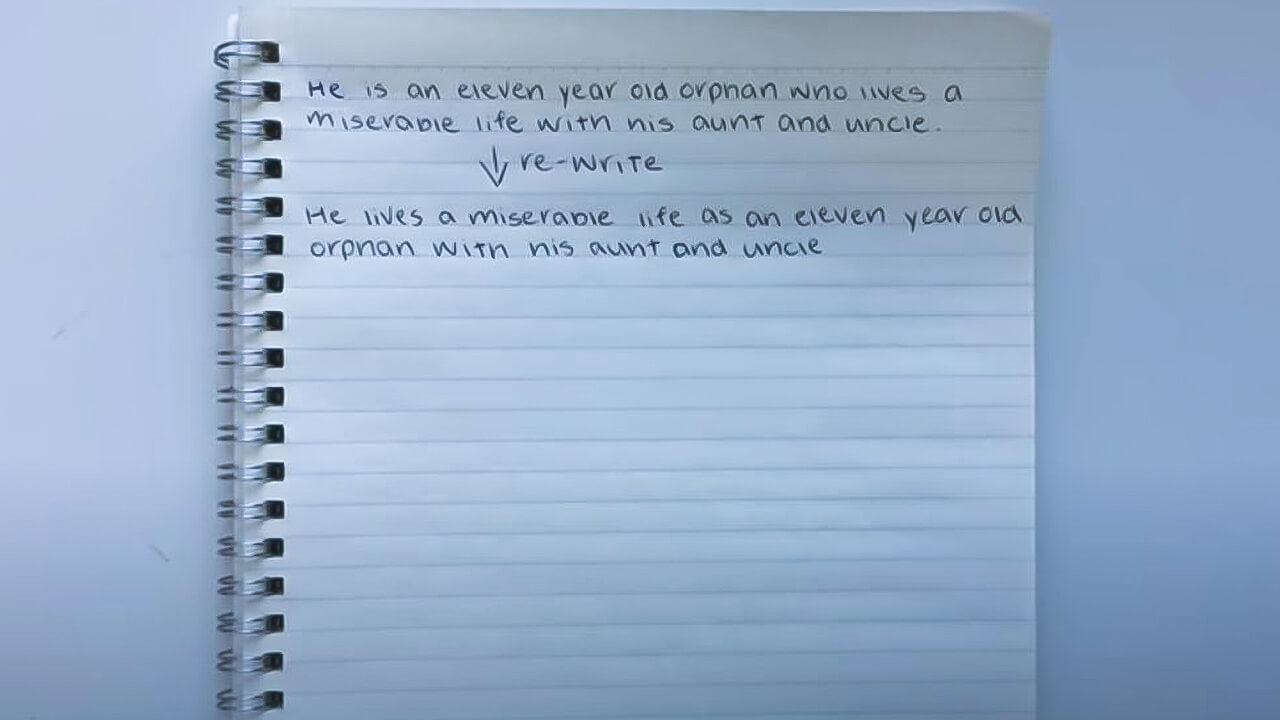 He is an eleven year old orphan who lives a
miserable life with his aunt and uncle.
↓ re-write
He lives a miserable life as an eleven year old
orphan with his aunt and uncle